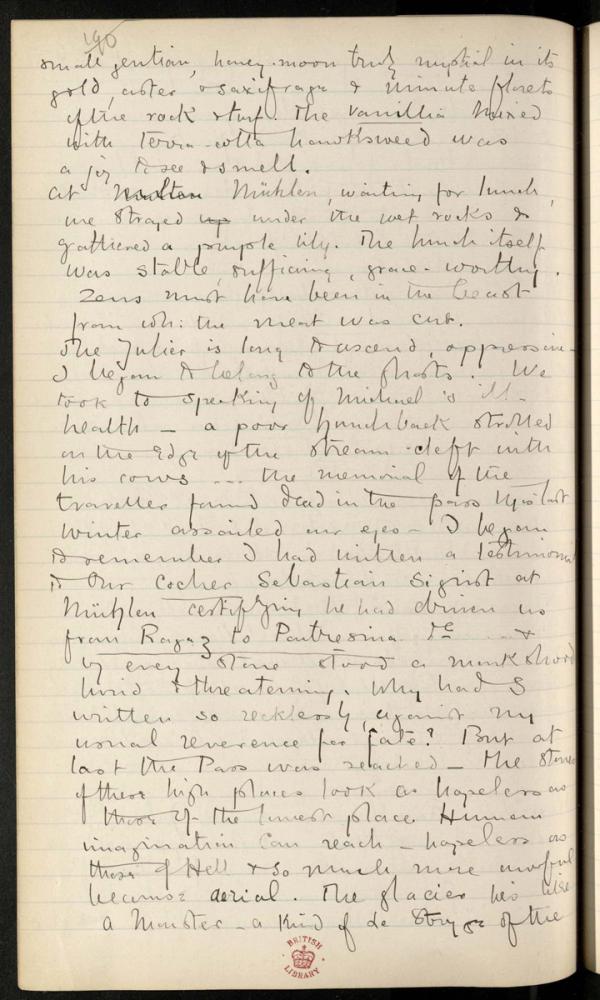 190
small gentian, honey-moon truly nuptial in its
gold, aster & saxifrage & minute florets
of the rock & turf. The Vanillia mixed
with terra-cotta hawksweed was
a joy to see & smell.
At Mühlen, waiting for lunch,
we strayed up under the wet rocks &
gathered a purple lily. The lunch itself
was stable, sufficing, grace-worthy.
Zeus must have been in the beast
from wh: the meat was cut.
The Julier is long to ascend, oppressive –
I began to belong to the ghosts. We
took to speaking of Michael's ill-
health – a poor hunchback strolled
on the edge of the stream-cleft with
his cows ... the memorial of the
traveller found dead in the pass this last
winter assailed our eyes – I began
to remember I had written a testimonial
to our cocher Sebastian Sigrist at
Mühlen certifying he had driven us
from Ragaz to Pontresina
by every stone stood a monkshood
lurid & threatening. Why had I
written so recklessly, against my
usual reverence for fate? But at
last the Pass was reached – the stones
of these high places look as hopeless as
those of the lowest place Human
imagination can reach – hopeless as
those of Hell & so much more awful
because aerial. The glacier lies like
a Monster – a kind of Le Stryge of the
BRITISH
LIBRARY